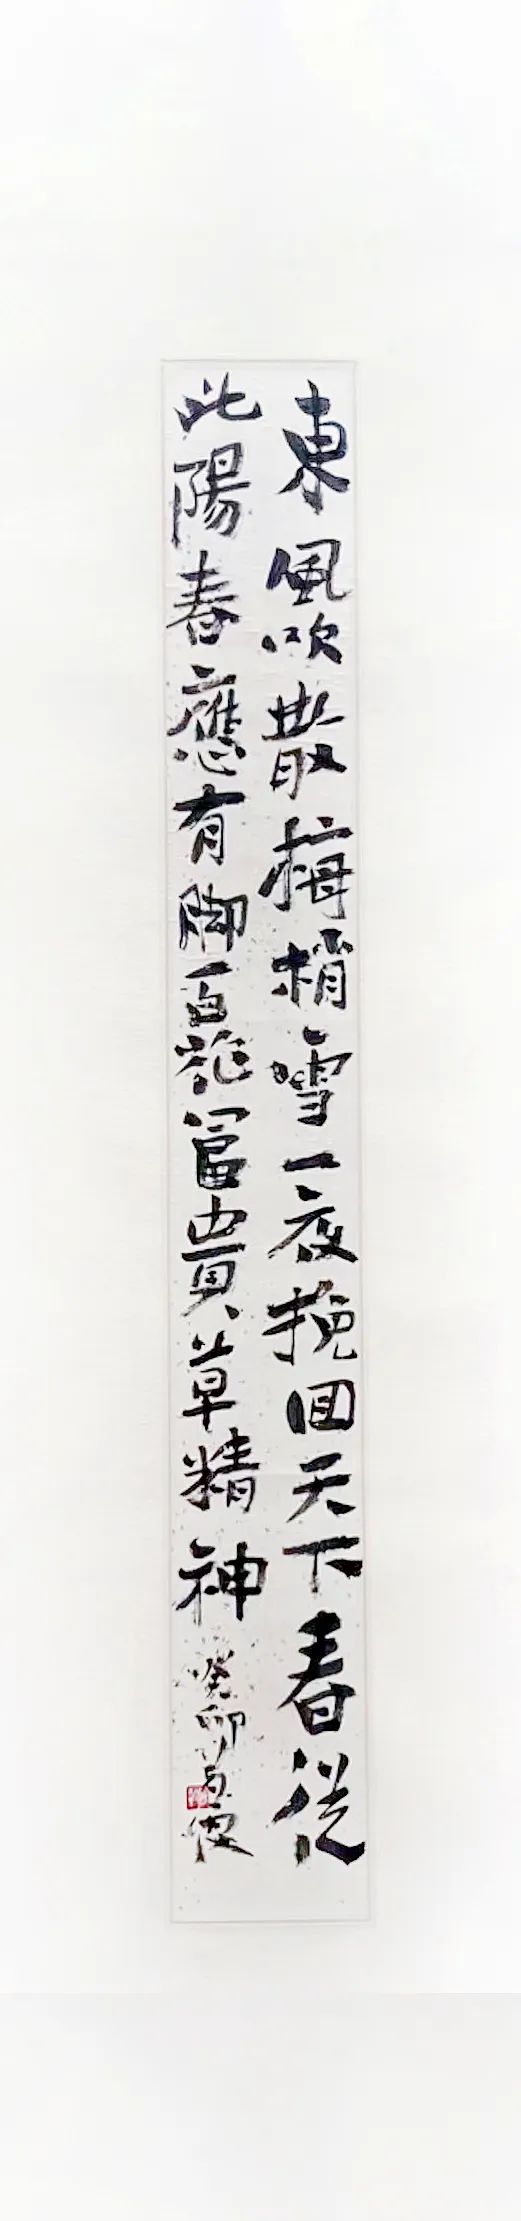 東風吹散梅梢雪一夜挽回天下春從
此陽春應有脚百花富貴草精神
癸卯